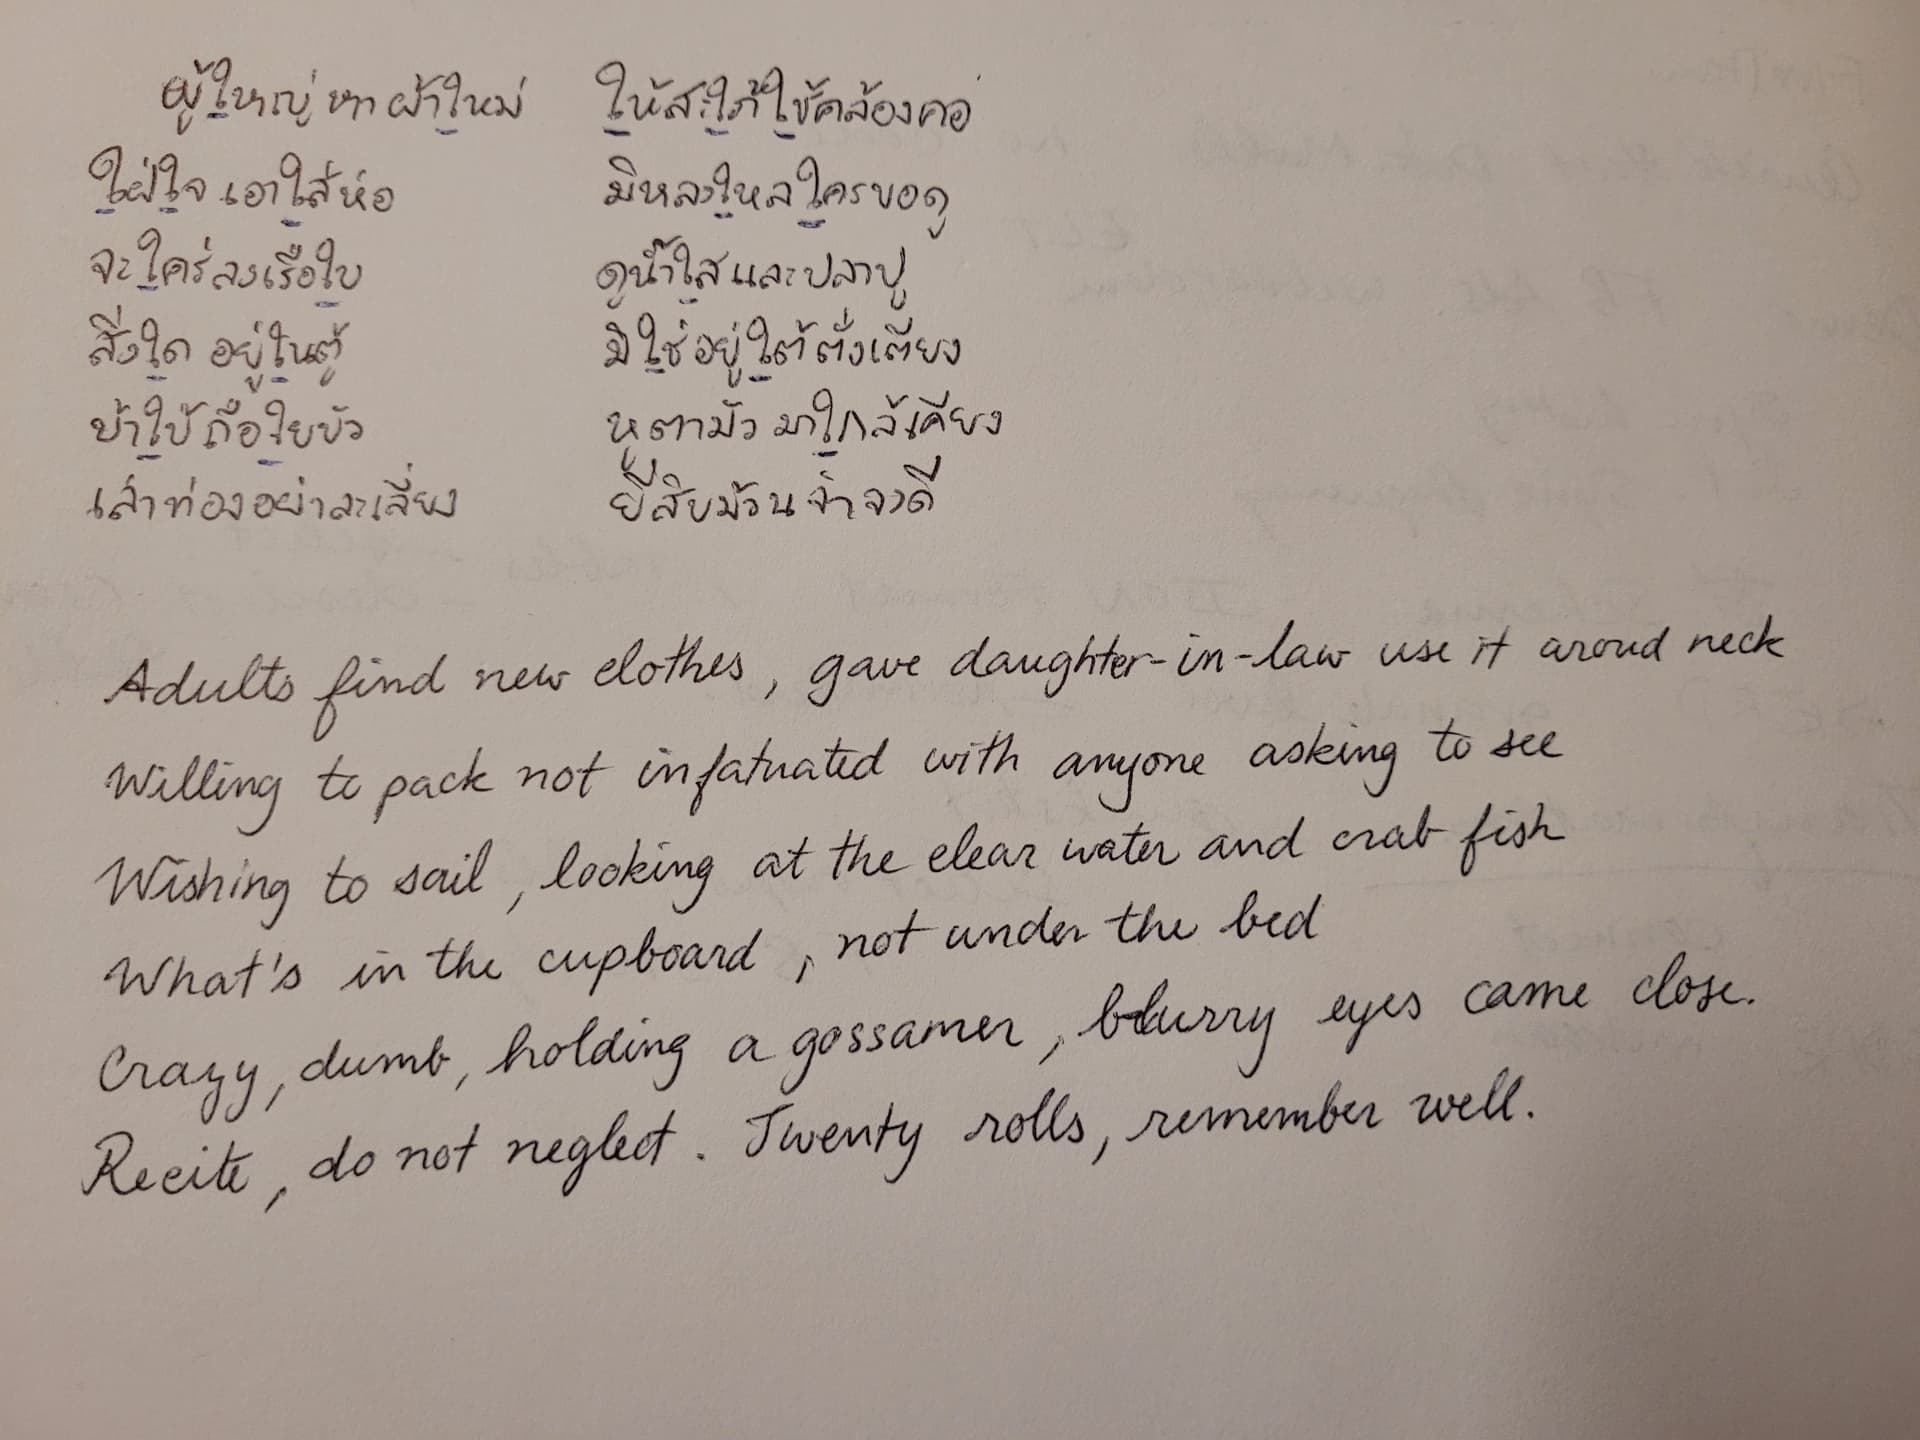 ผู้ใหญ่หาผ้าใหม่ ให้สะใภ้ใช้คล้องคอ
ใฝ่ใจเอาใส่ห่อ มิหลงใหลใครขอดู
จะใคร่ลงเรือใบ ดูน้ำใสและปลาปู
สิ่งใดอยู่ในตู้ มิใช่อยู่ใต้ตั่งเตียง
บ้าใบ้ถือใยบัว หูตามัวมาใกล้เคียง
เล่าท่องอย่าละเลี่ยง ยี่สิบม้วนจำจงดี
Adults find new clothes, gave daughter-in-law use it aroud neck
Willing to pack not infatuated with anyone asking to see
Wishing to sail, looking at the clear water and crab fish
What's in the cupboard, not under the bed
Crazy, dumb, holding a gossamer, blurry eyes came close.
Recite, do not neglect. Twenty rolls, remember well.